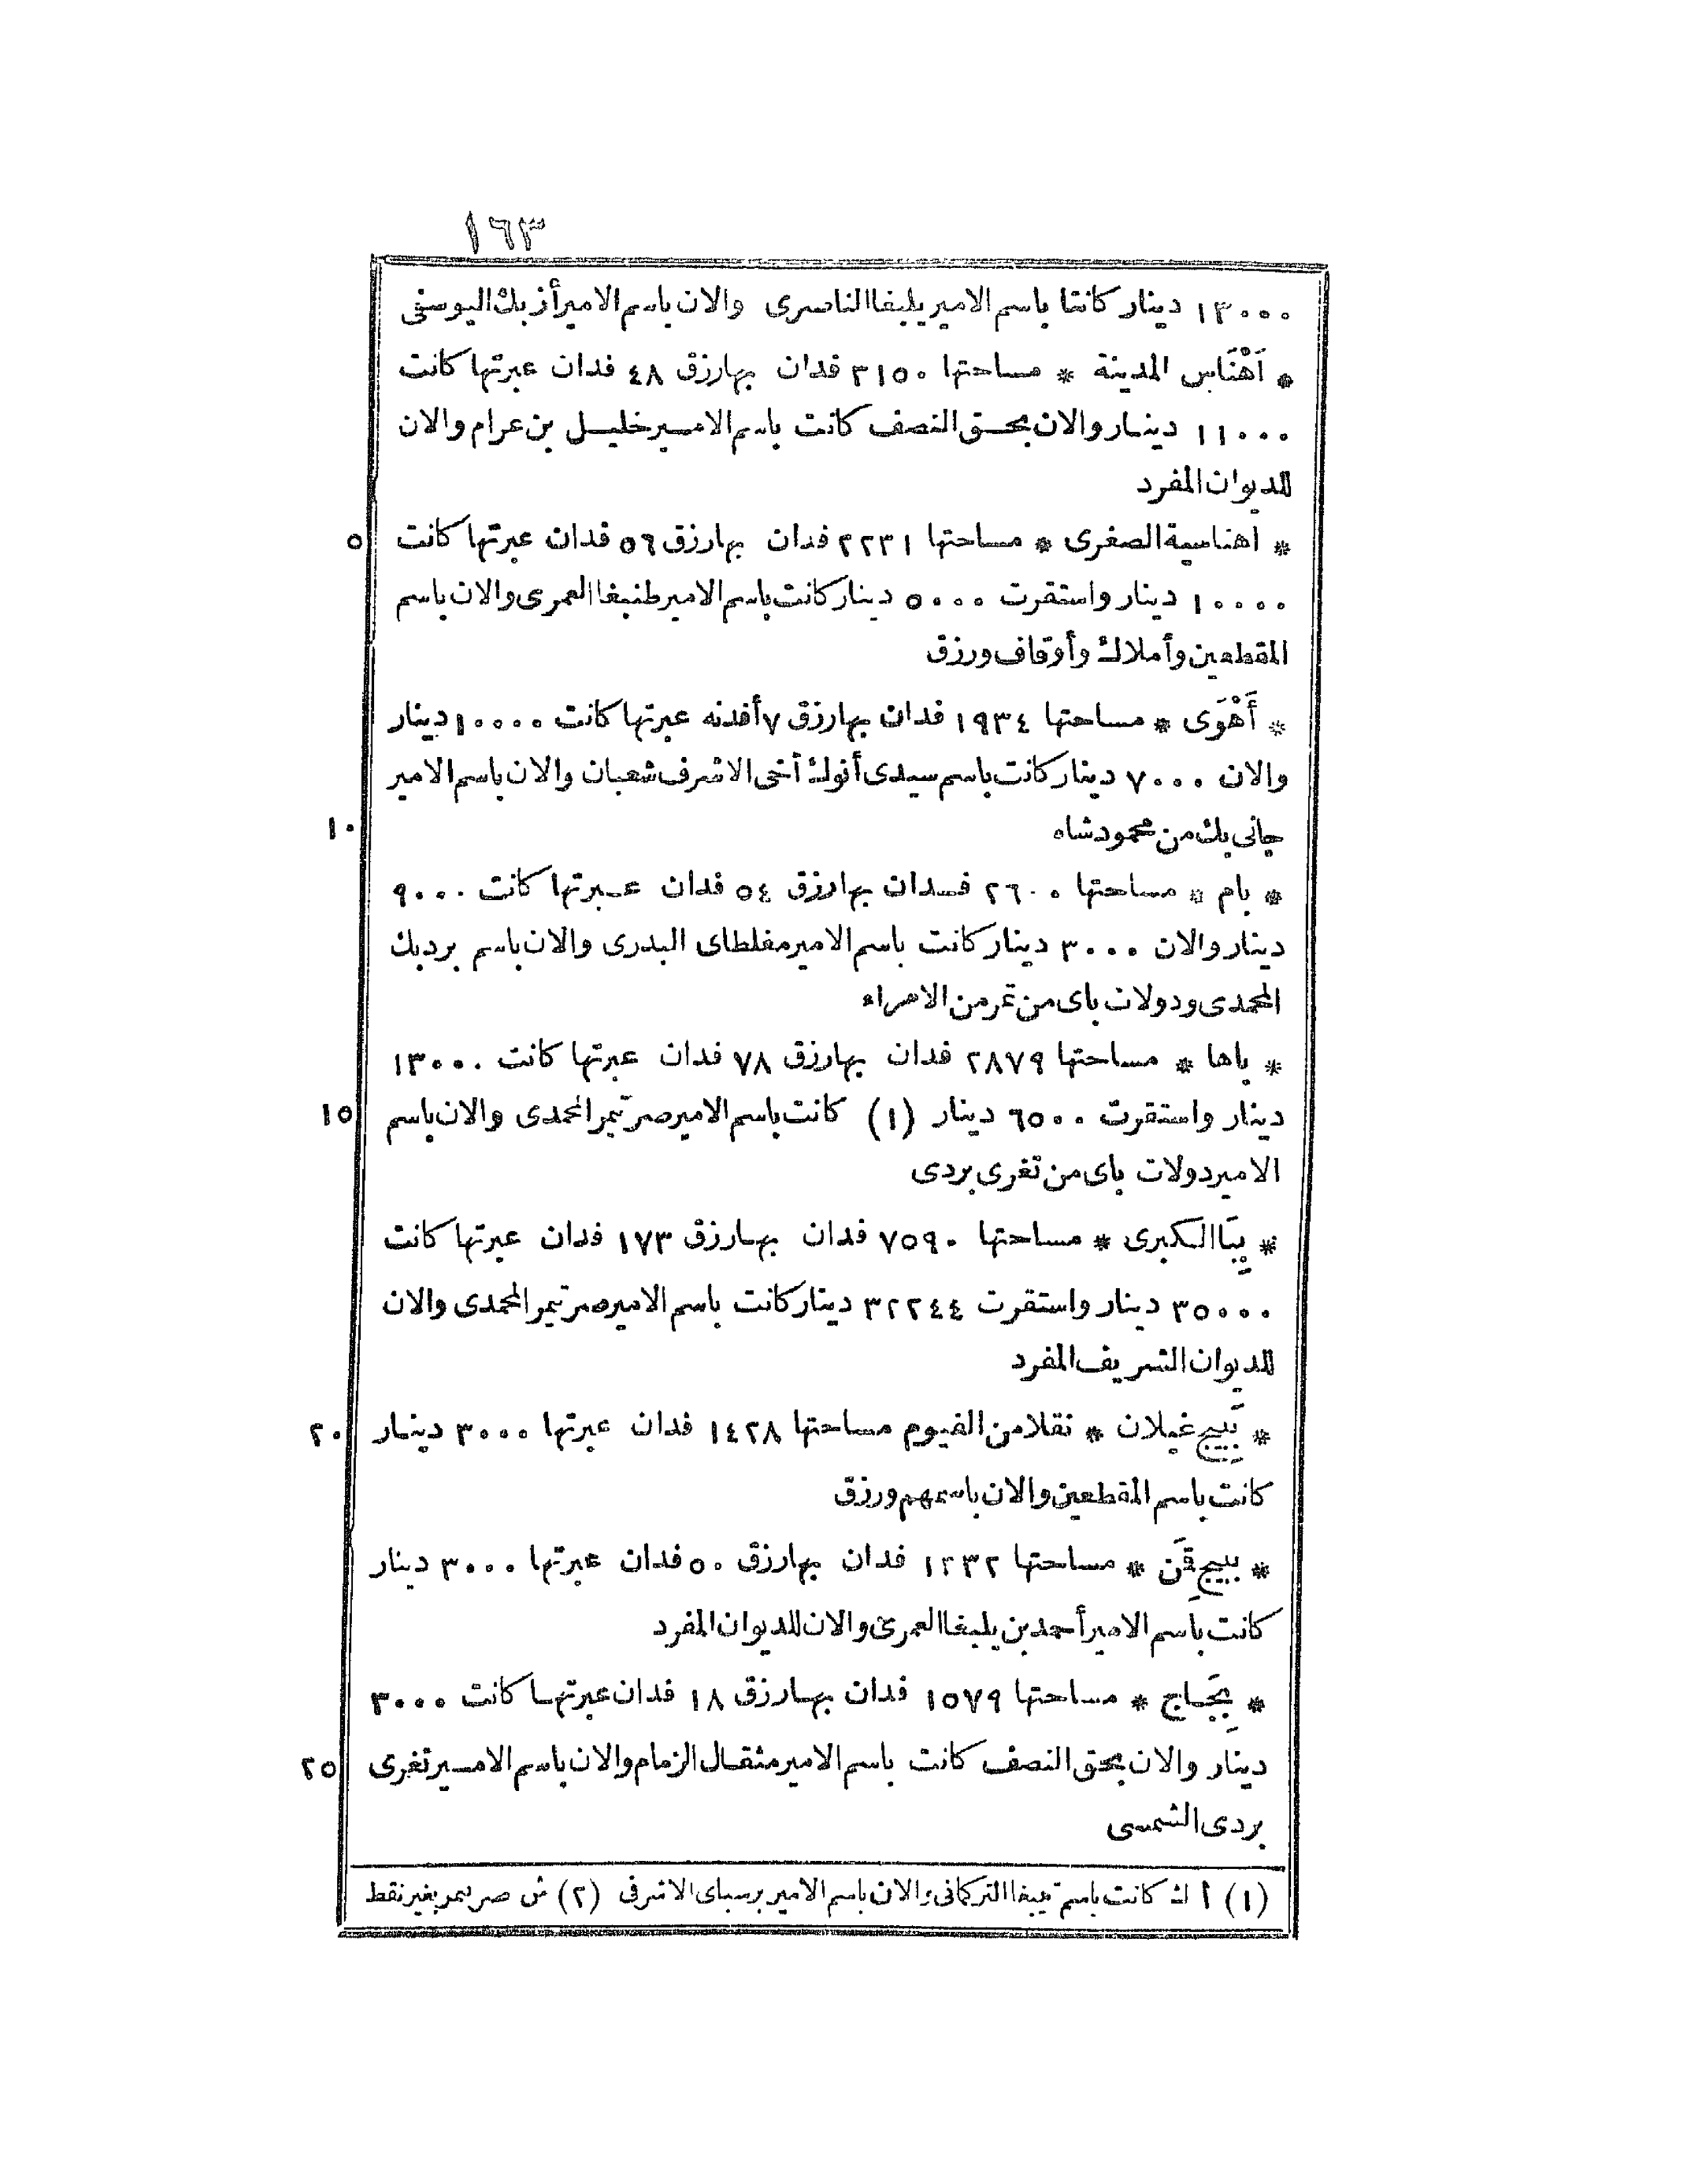 ١٦٣
١٣٠٠٠ دينار كانتا باسم الامير يلبغا الناصرى والان باسم الامير أزبك اليوسفى
* اَهْنَاس المدينة * مساحتها ٣١٥٠ فدان بها رزق ٤٨ فدان عبرتها كانت
١١٠٠٠ دينار والان بحق النصف كانت باسم الامير خليل بن عرام والان
للديوان المفرد
* اهناسية الصغرى * مساحتها ٢٢٣١ فدان بها رزق ٥٦ فدان عبرتها كانت ٥
١٠٠٠٠ دينار واستقرت ٥٠٠٠ دينار كانت باسم الامير طنبغا العمرى والان باسم
المقطعين وأملاك وأوقاف ورزق
* أَهْوَى * مساحتها ١٩٣٤ فدان بها رزق ٧ أفدنه عبرتها كانت ١٠٠٠٠ دينار
والان ٧٠٠٠ دينار كانت باسم سيدى أنوك أخى الاشرف شعبان والان باسم الامير
جانى بك من محمود شاه ١٠
* بام * مساحتها ٢٦٠٠ فدان بها رزق ٥٤ فدان عبرتها كانت ٩٠٠٠
دينار والان ٣٠٠٠ دينار كانت باسم الامير مغلطاى البدرى والان باسم بردبك
المحمدى ودولات باى من تمر من الامراء
* باها * مساحتها ٢٨٧٩ فدان بها رزق ٧٨ فدان عبرتها كانت ١٣٠٠٠
دينار واستقرت ٦٥٠٠ دينار (١) كانت باسم الامير صرتيمر المحمدى والان باسم ١٥
الامير دولات باى من تغرى بردى
* بِبَا الكبرى * مساحتها ٧٥٩٠ فدان بها رزق ١٧٣ فدان عبرتها كانت
٣٥٠٠٠ دينار واستقرت ٣٢٢٤٤ دينار كانت باسم الامير صرتيمر المحمدى والان
للديوان الشريف المفرد
* بَبِيج غيلان * نقلا من الفيوم مساحتها ١٤٢٨ فدان عبرتها ٣٠٠٠ دينار ٢٠
كانت باسم المقطعين والان باسمهم ورزق
* ببيج قِمَن * مساحتها ١٢٣٢ فدان بها رزق ٥٠ فدان عبرتها ٣٠٠٠ دينار
كانت باسم الامير أحمد بن يلبغا العمرى والان للديوان المفرد
* بِجَجاج * مساحتها ١٥٧٩ فدان بها رزق ١٨ فدان عبرتها كانت ٣٠٠٠
دينار والان بحق النصف كانت باسم الامير مثقال الزمام والان باسم الامير تغرى ٢٥
بردى الشمسى
(١) أ ك كانت باسم تيبغا التركمانى والان باسم الامير برسباى الاشرفى (٢) ش صرىىمر بغير نقط